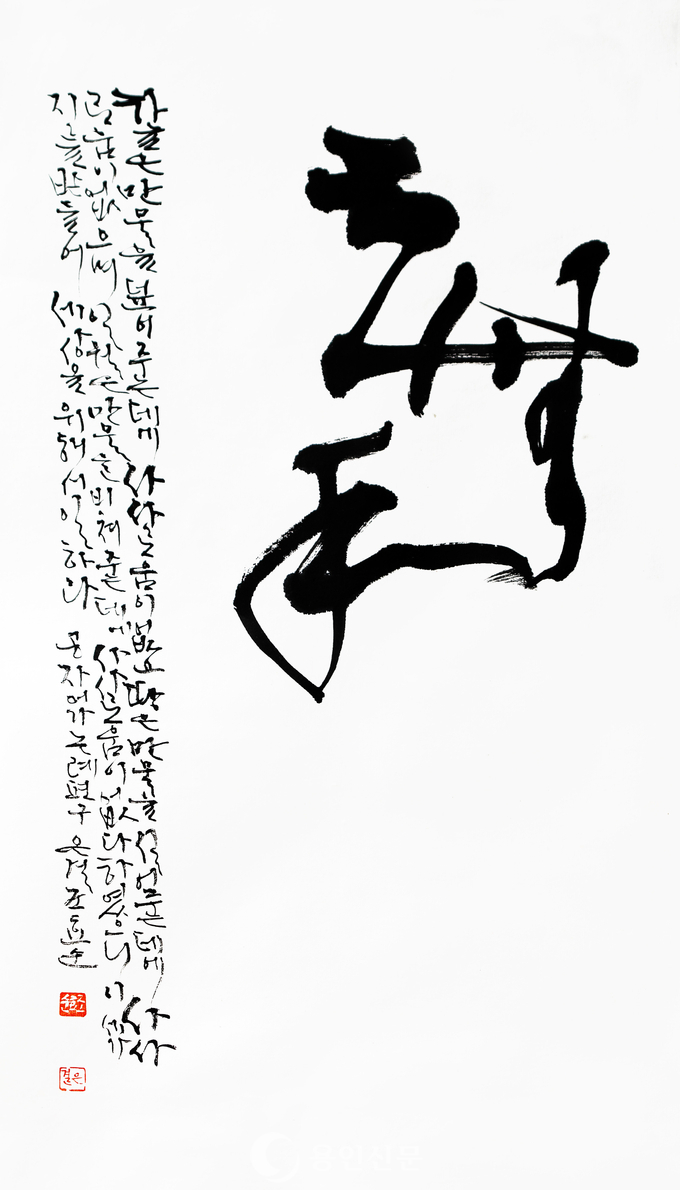 三無私
하늘은 만물을 덮어주는데에 사사로움이 없고 땅은 만물을 실어주는데에 사사
로움이 없으며 일월은 만물을 비쳐주는데에 사사로움이 없다 하였으니 이 세가
지를 받들어 세상을 위해서 일하라 공자어가 논례편구 은결
은결
용인신문